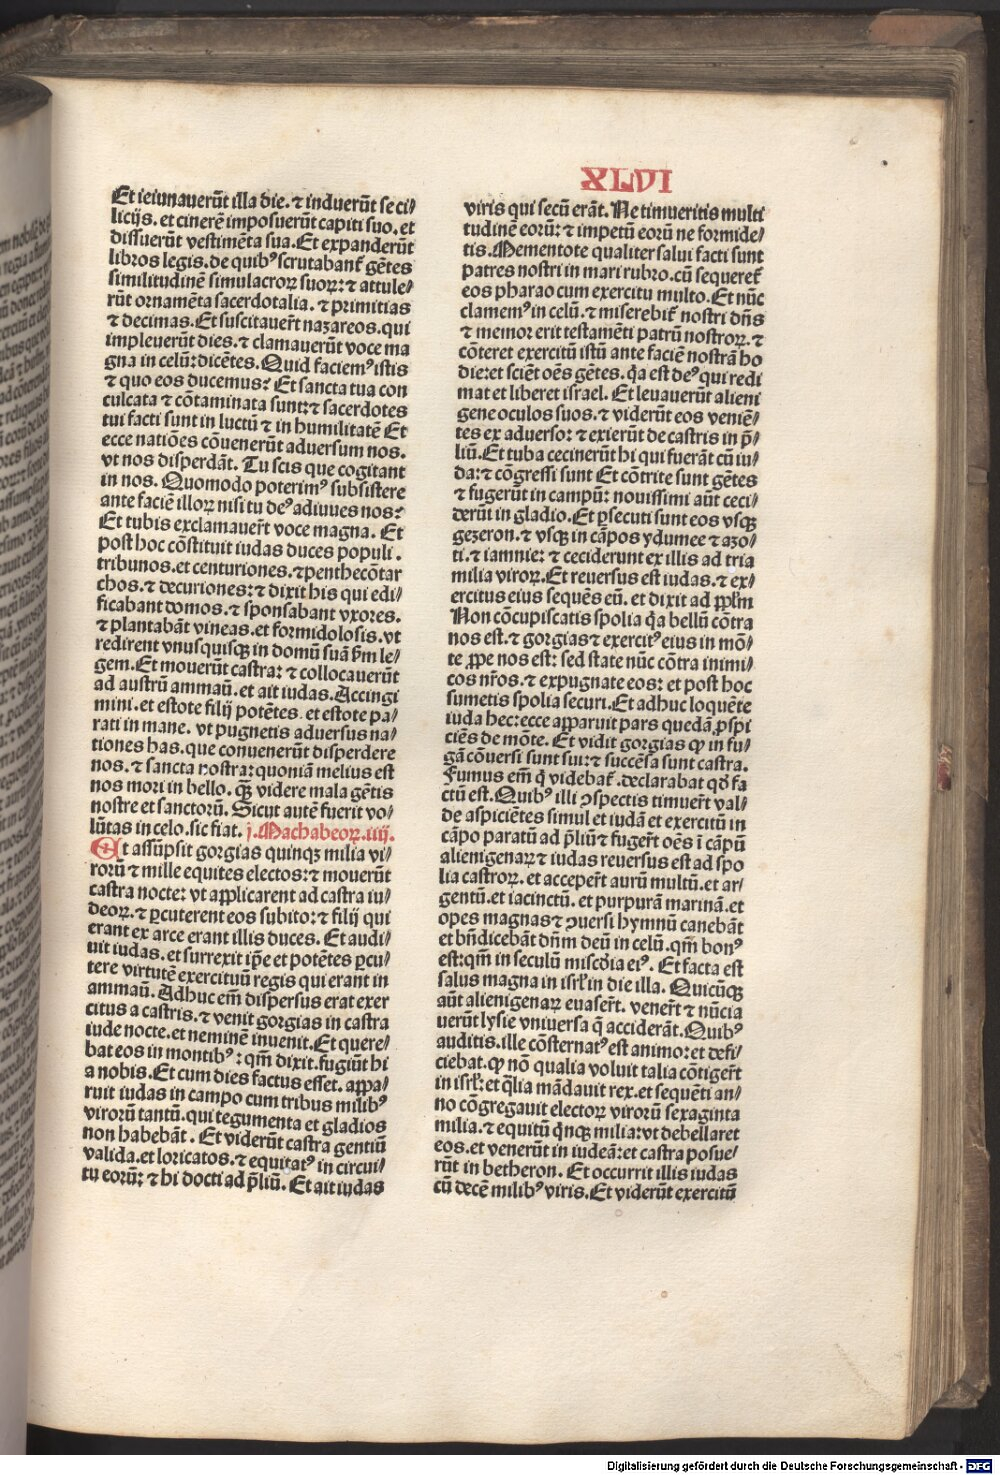 XLVI
Et ieiunauerūt illa die. ⁊ induerūt se ci⸗
licijs. et cinerē imposuerūt capiti suo. et
dissuerūt vestimēta sua. Et expanderūt
libros legis. de quibꝰ scrutabant᷑ gētes
similitudinē simulacroꝝ suoꝝ: ⁊ attule⸗
rūt ornamēta sacerdotalia. ⁊ primitias
⁊ decimas. Et suscitauer̄t nazareos. qui
impleuerūt dies. ⁊ clamauerūt voce ma
gna in celū: dicētes. Quid faciemꝰ istis
⁊ quo eos ducemus? Et sancta tua con
culcata ⁊ cōtaminata sunt: ⁊ sacerdotes
tui facti sunt in luctū ⁊ in humilitatē Et
ecce natiōes cōuenerūt aduersum nos.
vt nos disperdāt. Tu scis que cogitant
in nos. Quomodo poterimꝰ subsistere
ante faciē illoꝝ nisi tu deꝰ adiuues nos?
Et tubis exclamauer̄t voce magna. Et
post hoc cōstituit iudas duces populi.
tribunos. et centuriones. ⁊ penthecōtar
chos. ⁊ decuriones: ⁊ dixit his qui edi⸗
ficabant domos. ⁊ sponsabant vxores.
⁊ plantabāt vineas. et formidolosis. vt
redirent vnusquisqꝫ in domū suā ẜm le⸗
gem. Et mouerūt castra: ⁊ collocauerūt
ad austrū ammaū. et ait iudas. Accingi
mini. et estote filij potētes. et estote pa⸗
rati in mane. vt pugnetis aduersus na⸗
tiones has. que conuenerūt disperdere
nos. ⁊ sancta nostra: quoniā melius est
nos mori in bello. qꝫ̄ videre mala gētis
nostre et sanctorū. Sicut autē fuerit vo⸗
lūtas in celo. sic fiat. j. Machabeoꝝ. iiij.
Et assūpsit gorgias quinqꝫ milia vi⸗
rorū ⁊ mille equites electos: ⁊ mouerūt
castra nocte: vt applicarent ad castra iu⸗
deoꝝ. ⁊ ꝑcuterent eos subito: ⁊ filij qui
erant ex arce erant illis duces. Et audi⸗
uit iudas. et surrexit ip̄e et potētes ꝑcu⸗
tere virtutē exercituū regis qui erant in
ammaū. Adhuc em̄ dispersus erat exer
citus a castris. ⁊ venit gorgias in castra
iude nocte. et neminē inuenit. Et quere⸗
bat eos in montibꝰ: qm̄ dixit. fugiūt hi
a nobis. Et cum dies factus esset. appa⸗
ruit iudas in campo cum tribus milibꝰ
virorū tantū. qui tegumenta et gladios
non habebāt. Et viderūt castra gentiū
valida. et loricatos. ⁊ equitatꝰ in circui⸗
tu eorū: ⁊ hi docti ad p̄liū. Et ait iudas
viris qui secū erāt. Ne timueritis multi
tudinē eorū: ⁊ impetū eorū ne formide⸗
tis. Mementote qualiter salui facti sunt
patres nostri in mari rubro. cū sequeret᷑
eos pharao cum exercitu multo. Et nūc
clamemꝰ in celū. ⁊ miserebit᷑ nostri dn̄s
⁊ memor erit testamēti patrū nostroꝝ. ⁊
cōteret exercitū istū ante faciē nostrā ho
die: et sciēt oēs gētes. q̄a est deꝰ qui redi
mat et liberet israel. Et leuauerūt alieni
gene oculos suos. ⁊ viderūt eos veniē⸗
tes ex aduerso: ⁊ exierūt de castris in p̄⸗
liū. Et tuba cecinerūt hi qui fuerāt cū iu⸗
da: ⁊ cōgressi sunt Et cōtrite sunt gētes
⁊ fugerūt in campū: nouissimi aūt ceci⸗
derūt in gladio. Et ꝑsecuti sunt eos vsqꝫ
gezeron. ⁊ vsqꝫ in cāpos ydumee ⁊ azo⸗
ti. ⁊ iamnie: ⁊ ceciderunt ex illis ad tria
milia viroꝝ. Et reuersus est iudas. ⁊ ex⸗
ercitus eius sequēs eū. et dixit ad pp̄lm
Non cōcupiscatis spolia q̄a bellū cōtra
nos est. ⁊ gorgias ⁊ exercitꝰ eius in mō⸗
te ꝓpe nos est: sed state nūc cōtra inimi⸗
cos nr̄os. ⁊ expugnate eos: et post hoc
sumetis spolia securi. Et adhuc loquēte
iuda hec: ecce apparuit pars quedā ꝓspi
ciēs de mōte. Et vidit gorgias ꝙ in fu⸗
gā cōuersi sunt sui: ⁊ succēsa sunt castra.
Fumus em̄ q̄ videbat᷑. declarabat qd̄ fa
ctū est. Quibꝰ illi ꝯspectis timuer̄t val⸗
de aspiciētes simul et iudā et exercitū in
cāpo paratū ad p̄liū ⁊ fuger̄t oēs ī cāpū
alienigenaꝝ ⁊ iudas reuersus est ad spo
lia castroꝝ. et acceper̄t aurū multū. et ar⸗
gentū. et iacinctū. et purpurā marinā. et
opes magnas ⁊ ꝯuersi hymnū canebāt
et bn̄dicebāt dn̄m deū in celū. qm̄ bonꝰ
est: qm̄ in seculū misc̄dia eiꝰ. Et facta est
salus magna in isr̄l in die illa. Quicūqꝫ
aūt alienigenaꝝ euaser̄t. vener̄t ⁊ nūcia
uerūt lysie vniuersa q̄ acciderāt. Quibꝰ
auditis. ille cōsternatꝰ est animo: et defi⸗
ciebat. ꝙ nō qualia voluit talia cōtiger̄t
in isr̄l: et q̄lia mādauit rex. et sequēti an⸗
no cōgregauit electoꝝ virorū sexaginta
milia. ⁊ equitū q̄nqꝫ milia: vt debellaret
eos. et venerūt in iudeā: et castra posue⸗
rūt in betheron. Et occurrit illis iudas
cū decē milibꝰ viris. Et viderūt exercitū
Digitalisierung gefördert durch die Deutsche Forschungsgemeinschaft - DFG